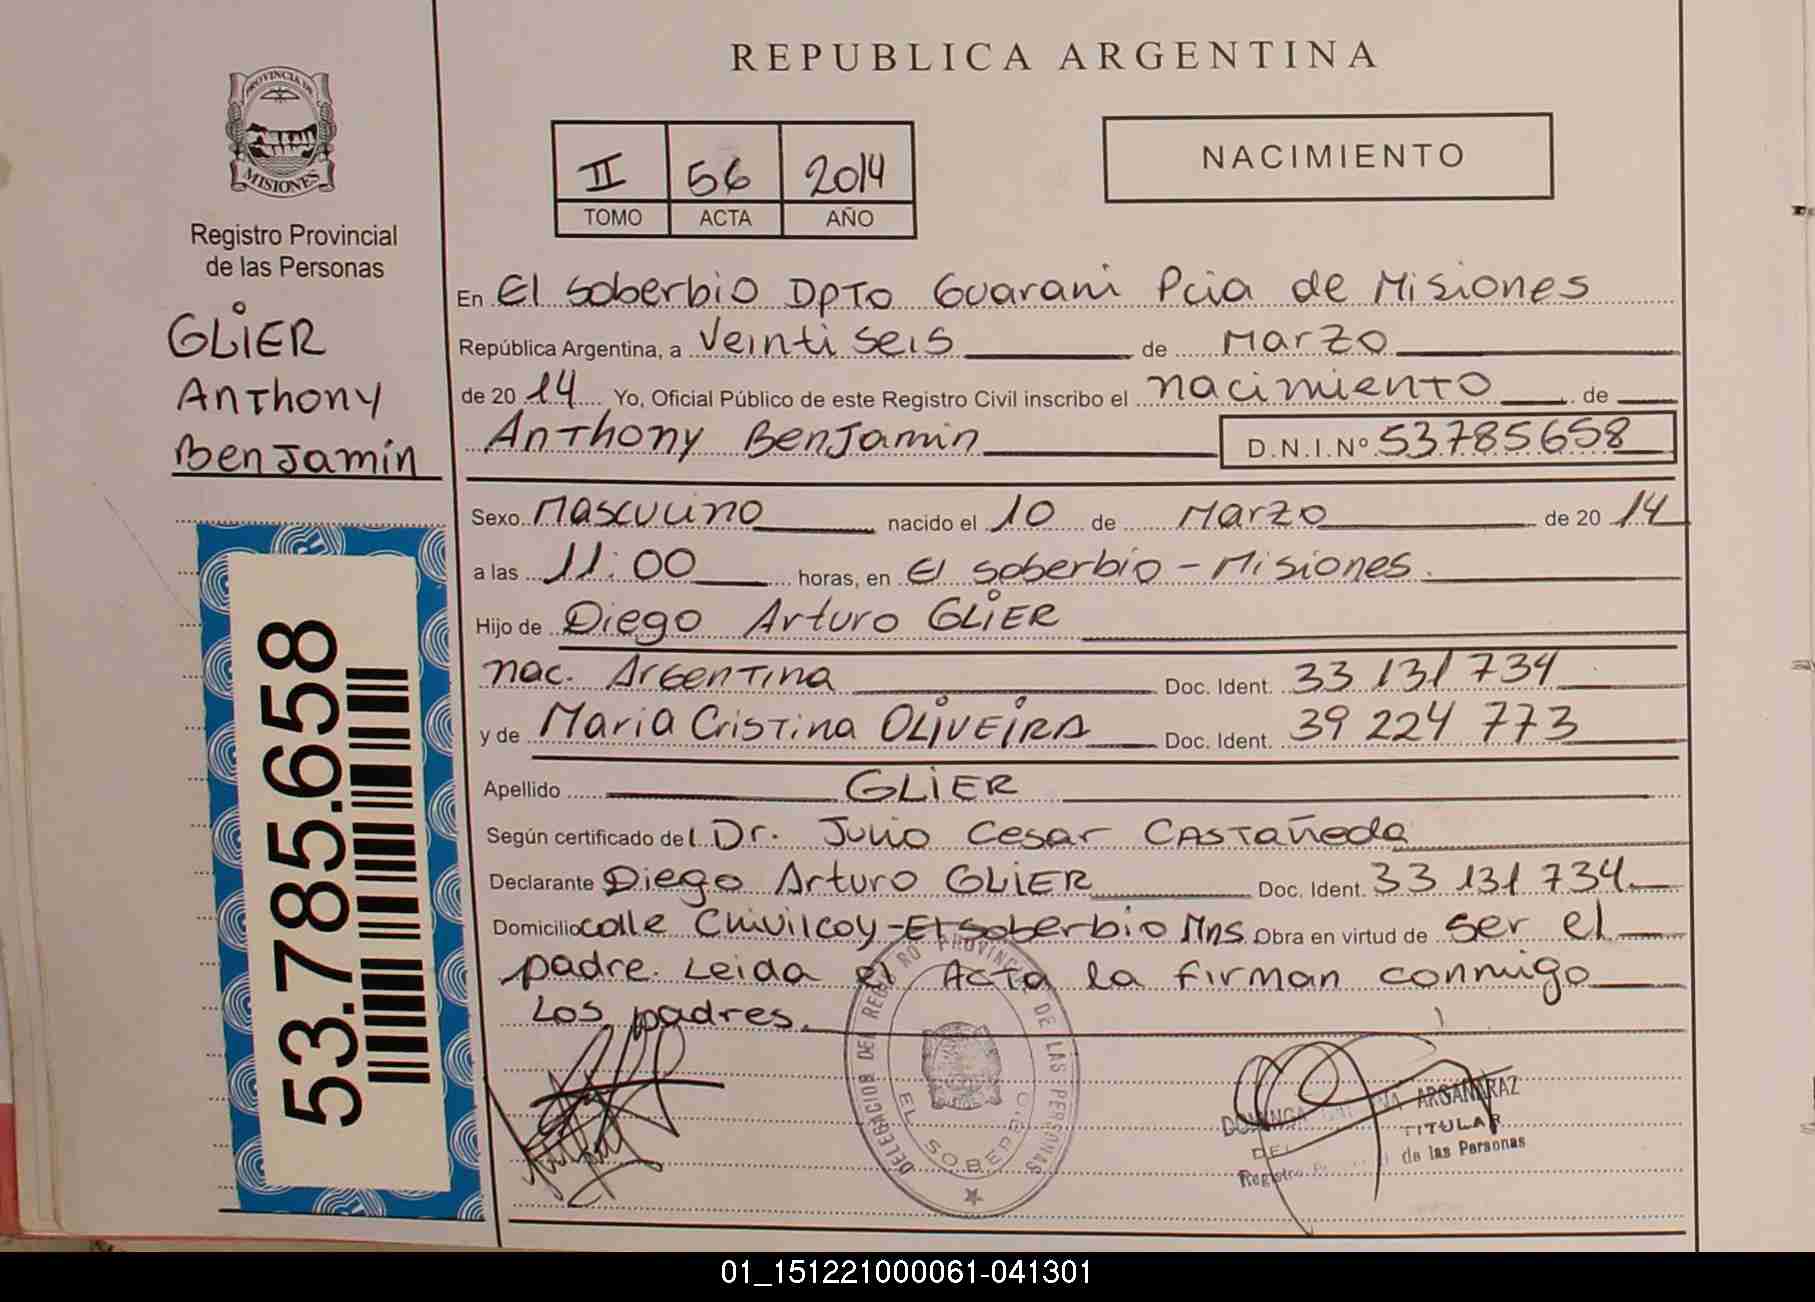 REPUBLICA ARGENTINA
PROVINCIA DE
MISIONES
Registro Provincial
de las Personas
GLIER
Anthony
Benjamín
53.785.658
II 56 2014
TOMO ACTA AÑO
NACIMIENTO
En El Soberbio Dpto Guarani Pcia de Misiones
República Argentina, a Veinti seis de Marzo
de 20 14 Yo, Oficial Público de este Registro Civil inscribo el nacimiento de
Anthony Benjamin D.N.I.Nº 53785658
Sexo Masculino nacido el 10 de Marzo de 20 14
a las 11:00 horas, en El Soberbio - Misiones.
Hijo de Diego Arturo GLIER
nac. Argentina Doc. Ident. 33 131 734
y de Maria Cristina OLIVEIRA Doc. Ident. 39 224 773
Apellido GLIER
Según certificado del Dr. Julio Cesar Castañeda
Declarante Diego Arturo GLIER Doc. Ident. 33 131 734
Domicilio calle Chivilcoy - El Soberbio Mns Obra en virtud de ser el
padre. Leida el Acta la firman conmigo
Los padres.
DELEGACION DEL REGISTRO PROVINCIAL DE LAS PERSONAS
EL SOBERBIO
ARGAÑARAZ
TITULAR
de las Personas
01_151221000061-041301